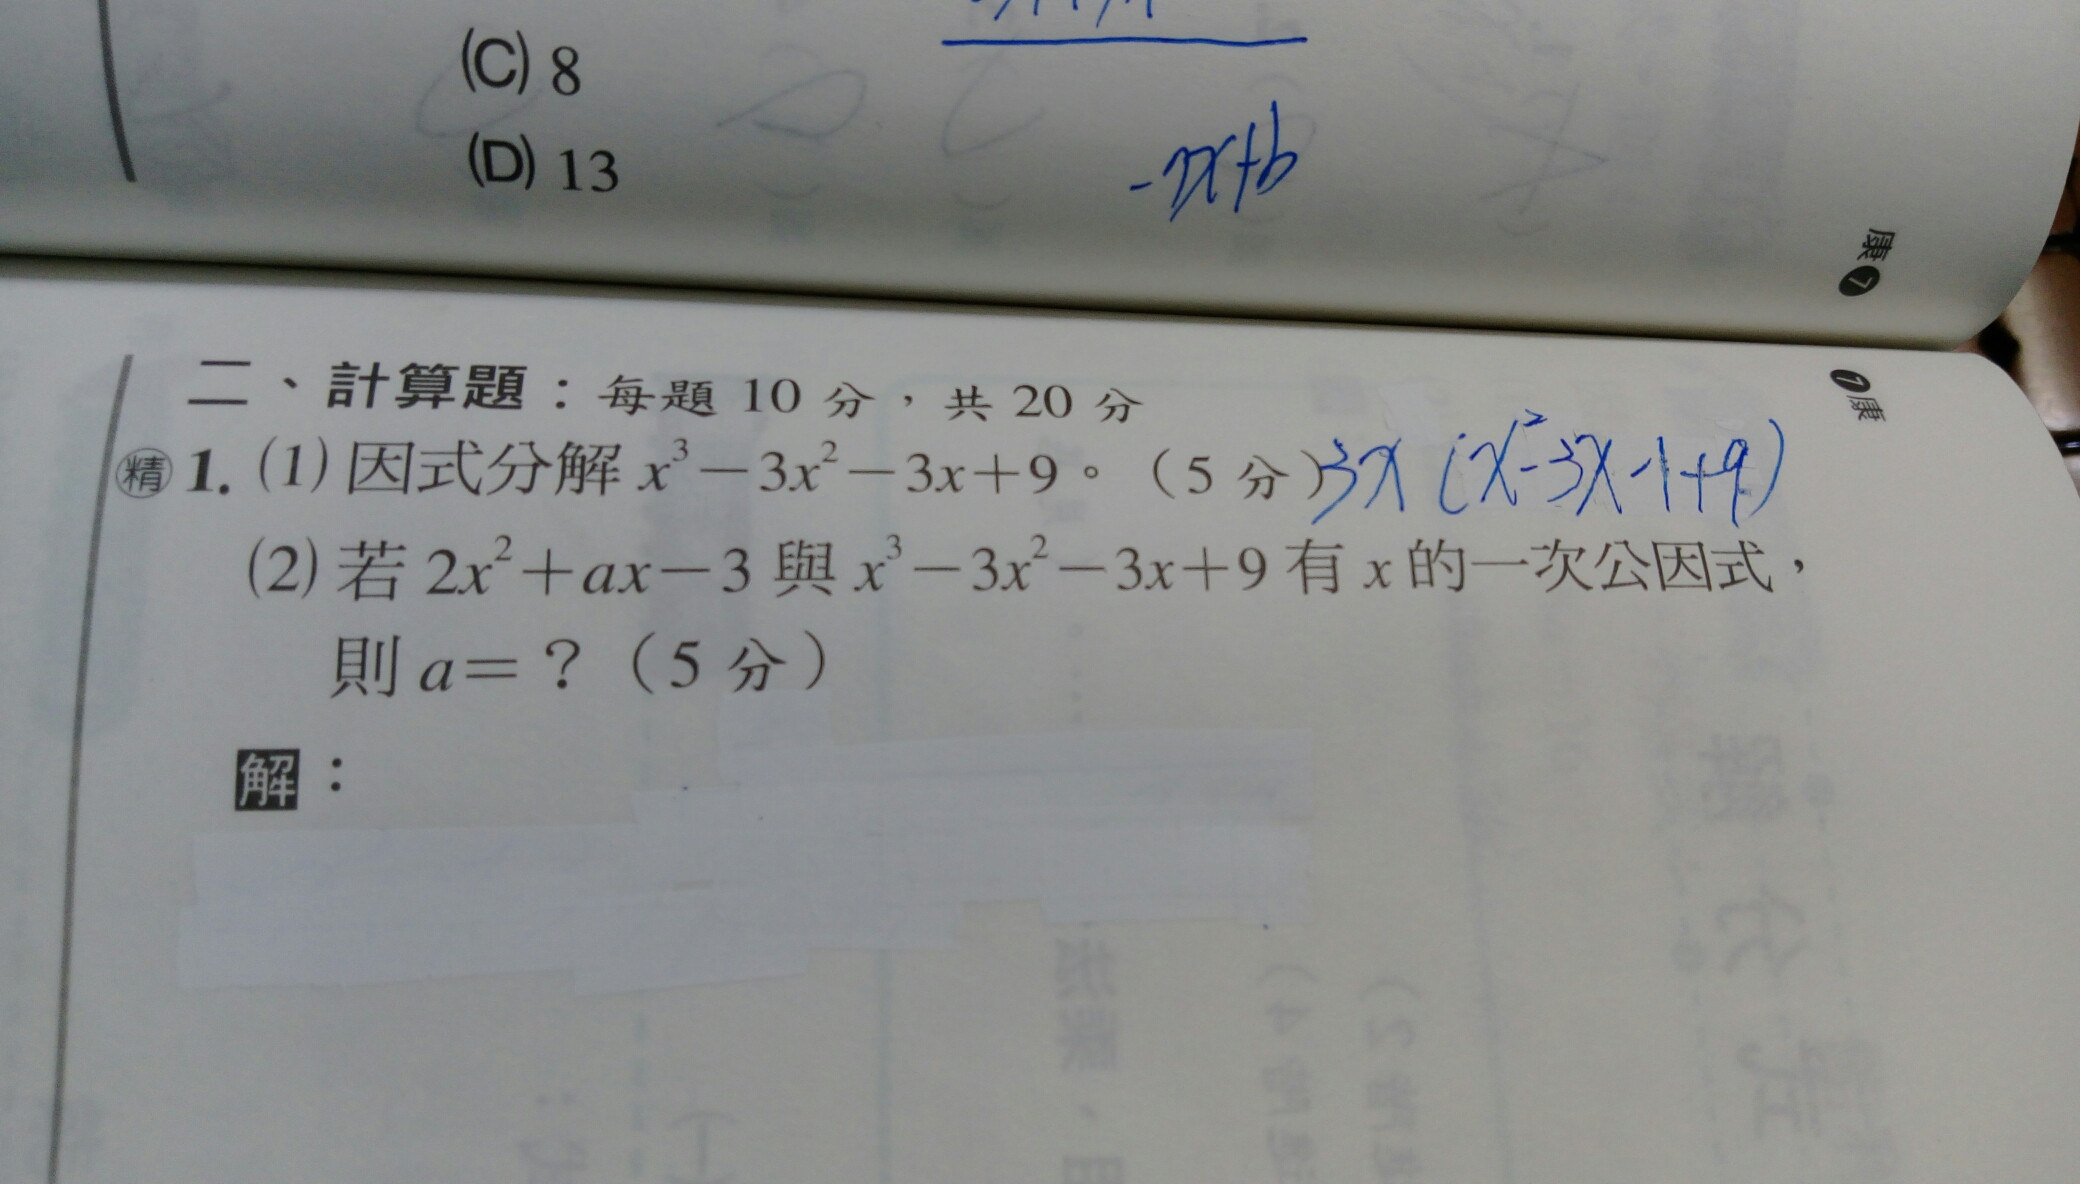 (C) 8
(D) 13
-3x+b
康 7
二、計算題：每題 10 分，共 20 分
7 康
精 1. (1) 因式分解 x³－3x²－3x＋9。（5 分） 3x (x²-3x-1+9)
(2) 若 2x²＋ax－3 與 x³－3x²－3x＋9 有 x 的一次公因式，
則 a＝？（5 分）
解：